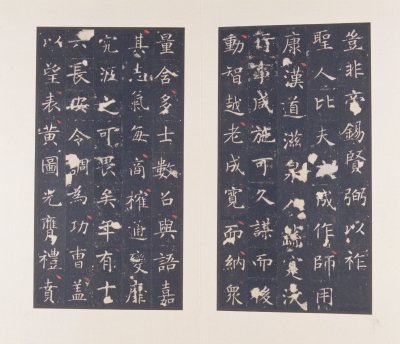 豈非帝錫賢弼以祚
聖人比夫成作師用
康漢道滋泉況
行成施可久謀而後
動智越老成寬而納衆
量含多士數公與語嘉
其志氣每商搉通變靡
究波之可畏矣年有十
六長安令調為功曹蓋
以望表黃圖光膺禮賁